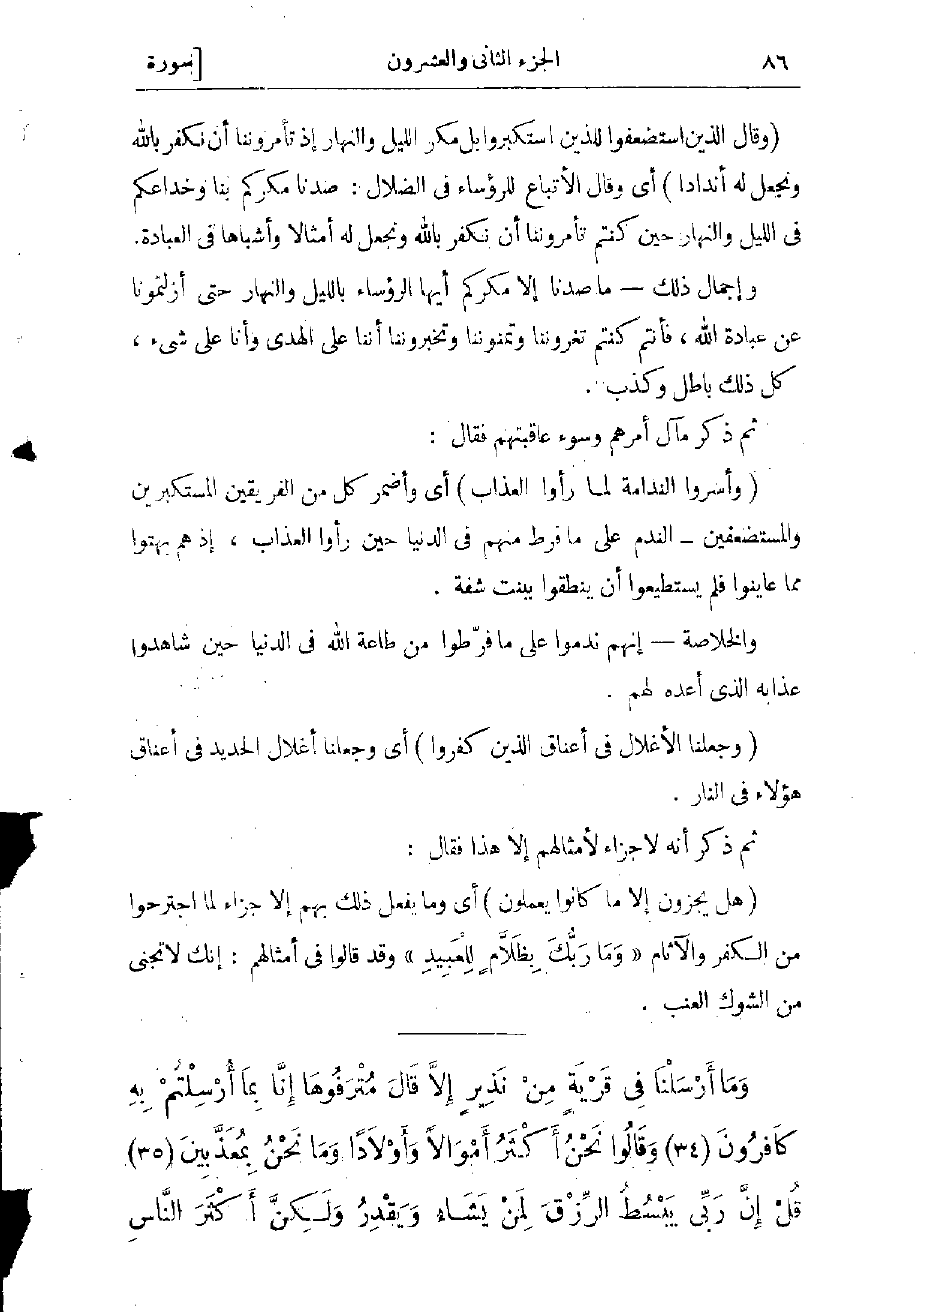 ٨٦ الجزء الثانى والعشرون [سورة
(وقال الذين استضعفوا للذين استكبروا بل مكر الليل والنهار إذ تأمروننا أن نكفر بالله
ونجعل له أندادا) أى وقال الأتباع للرؤساء فى الضلال : صدنا مكركم بنا وخداعكم
فى الليل والنهار حين كنتم تأمروننا أن نكفر بالله ونجعل له أمثالا وأشباها فى العبادة.
وإجمال ذلك — ما صدنا إلا مكركم أيها الرؤساء بالليل والنهار حتى أزلتمونا
عن عبادة الله ، فأنتم كنتم تغروننا وتمنوننا وتخبروننا أننا على الهدى وأنا على شىء ،
كل ذلك باطل وكذب .
ثم ذكر مآل أمرهم وسوء عاقبتهم فقال :
( وأسروا الندامة لما رأوا العذاب ) أى وأضمر كل من الفريقين المستكبرين
والمستضعفين ـ الندم على ما فرط منهم فى الدنيا حين رأوا العذاب ، إذ هم بهتوا
مما عاينوا فلم يستطيعوا أن ينطقوا ببنت شفة .
والخلاصة — إنهم ندموا على ما فرّطوا من طاعة الله فى الدنيا حين شاهدوا
عذابه الذى أعده لهم .
( وجعلنا الأغلال فى أعناق الذين كفروا ) أى وجعلنا أغلال الحديد فى أعناق
هؤلاء فى النار .
ثم ذكر أنه لا جزاء لأمثالهم إلا هذا فقال :
( هل يجزون إلا ما كانوا يعملون ) أى وما يفعل ذلك بهم إلا جزاء لما اجترحوا
من الكفر والآثام « وَمَا رَبُّكَ بِظَلَّامٍ لِلْعَبِيدِ » وقد قالوا فى أمثالهم : إنك لا تجنى
من الشوك العنب .
وَمَا أَرْسَلْنَا فِى قَرْيَةٍ مِنْ نَذِيرٍ إِلاَّ قَالَ مُتْرَفُوهَا إِنَّا بِمَا أُرْسِلْتُمْ بِهِ
كَافِرُونَ (٣٤) وَقَالُوا نَحْنُ أَكْثَرُ أَمْوَالاً وَأَوْلَادًا وَمَا نَحْنُ بِمُعَذَّبِينَ (٣٥)
قُلْ إِنَّ رَبِّى يَبْسُطُ الرِّزْقَ لِمَنْ يَشَاءُ وَيَقْدِرُ وَلَـكِنَّ أَكْثَرَ النَّاسِ